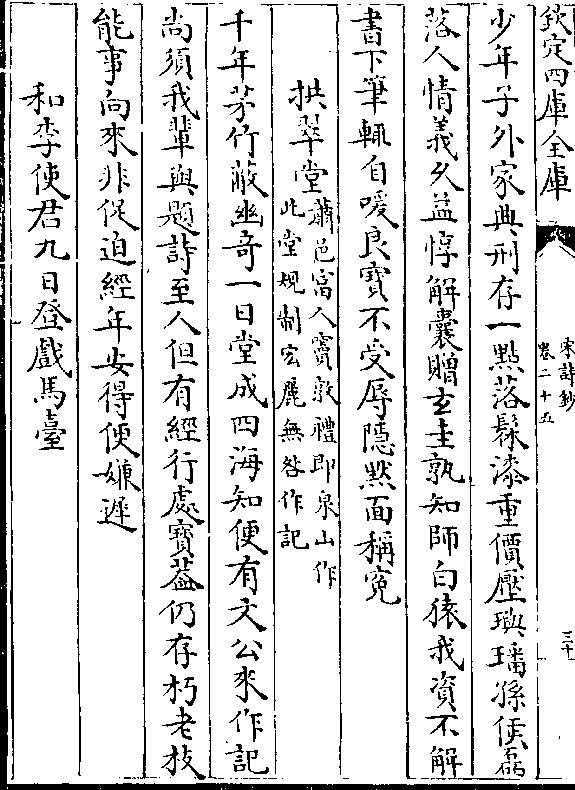 欽定四庫全書
宋詩鈔
卷二十五
三十
少年子外家典刑存一點落髹漆重價壓璵璠孫侯磊
落人情義久益惇解囊贈玄圭孰知師白猿我資不解
書下筆輒自嗳良寳不受辱隱黙面稱寃
拱翠堂
蕭邑富人竇敦禮即泉山作
此堂規制宏麗無咎作記
千年茅竹蔽幽奇一日堂成四海知便有文公來作記
尚須我輩與題詩至人但有經行處寳葢仍存朽老枝
能事向來非促迫經年安得便嫌遲
和李使君九日登戲馬臺